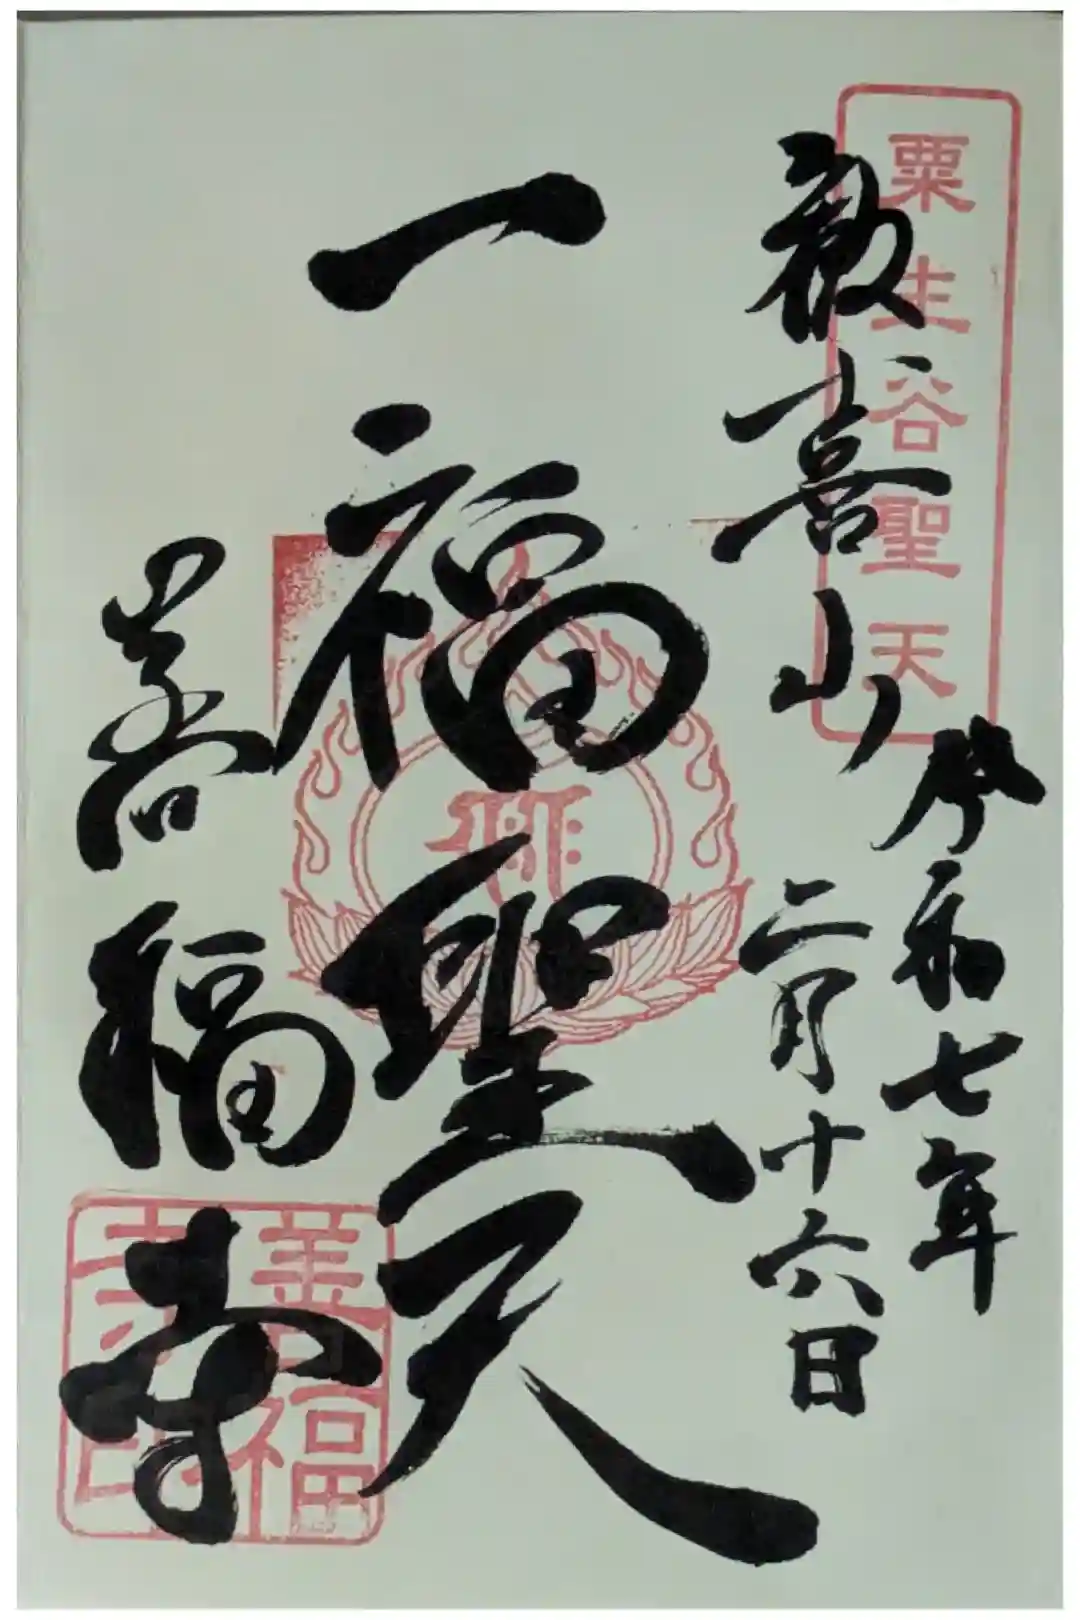 粟生谷聖天
歓喜山
令和七年
二月十六日
一福聖天
善福寺
善福寺印